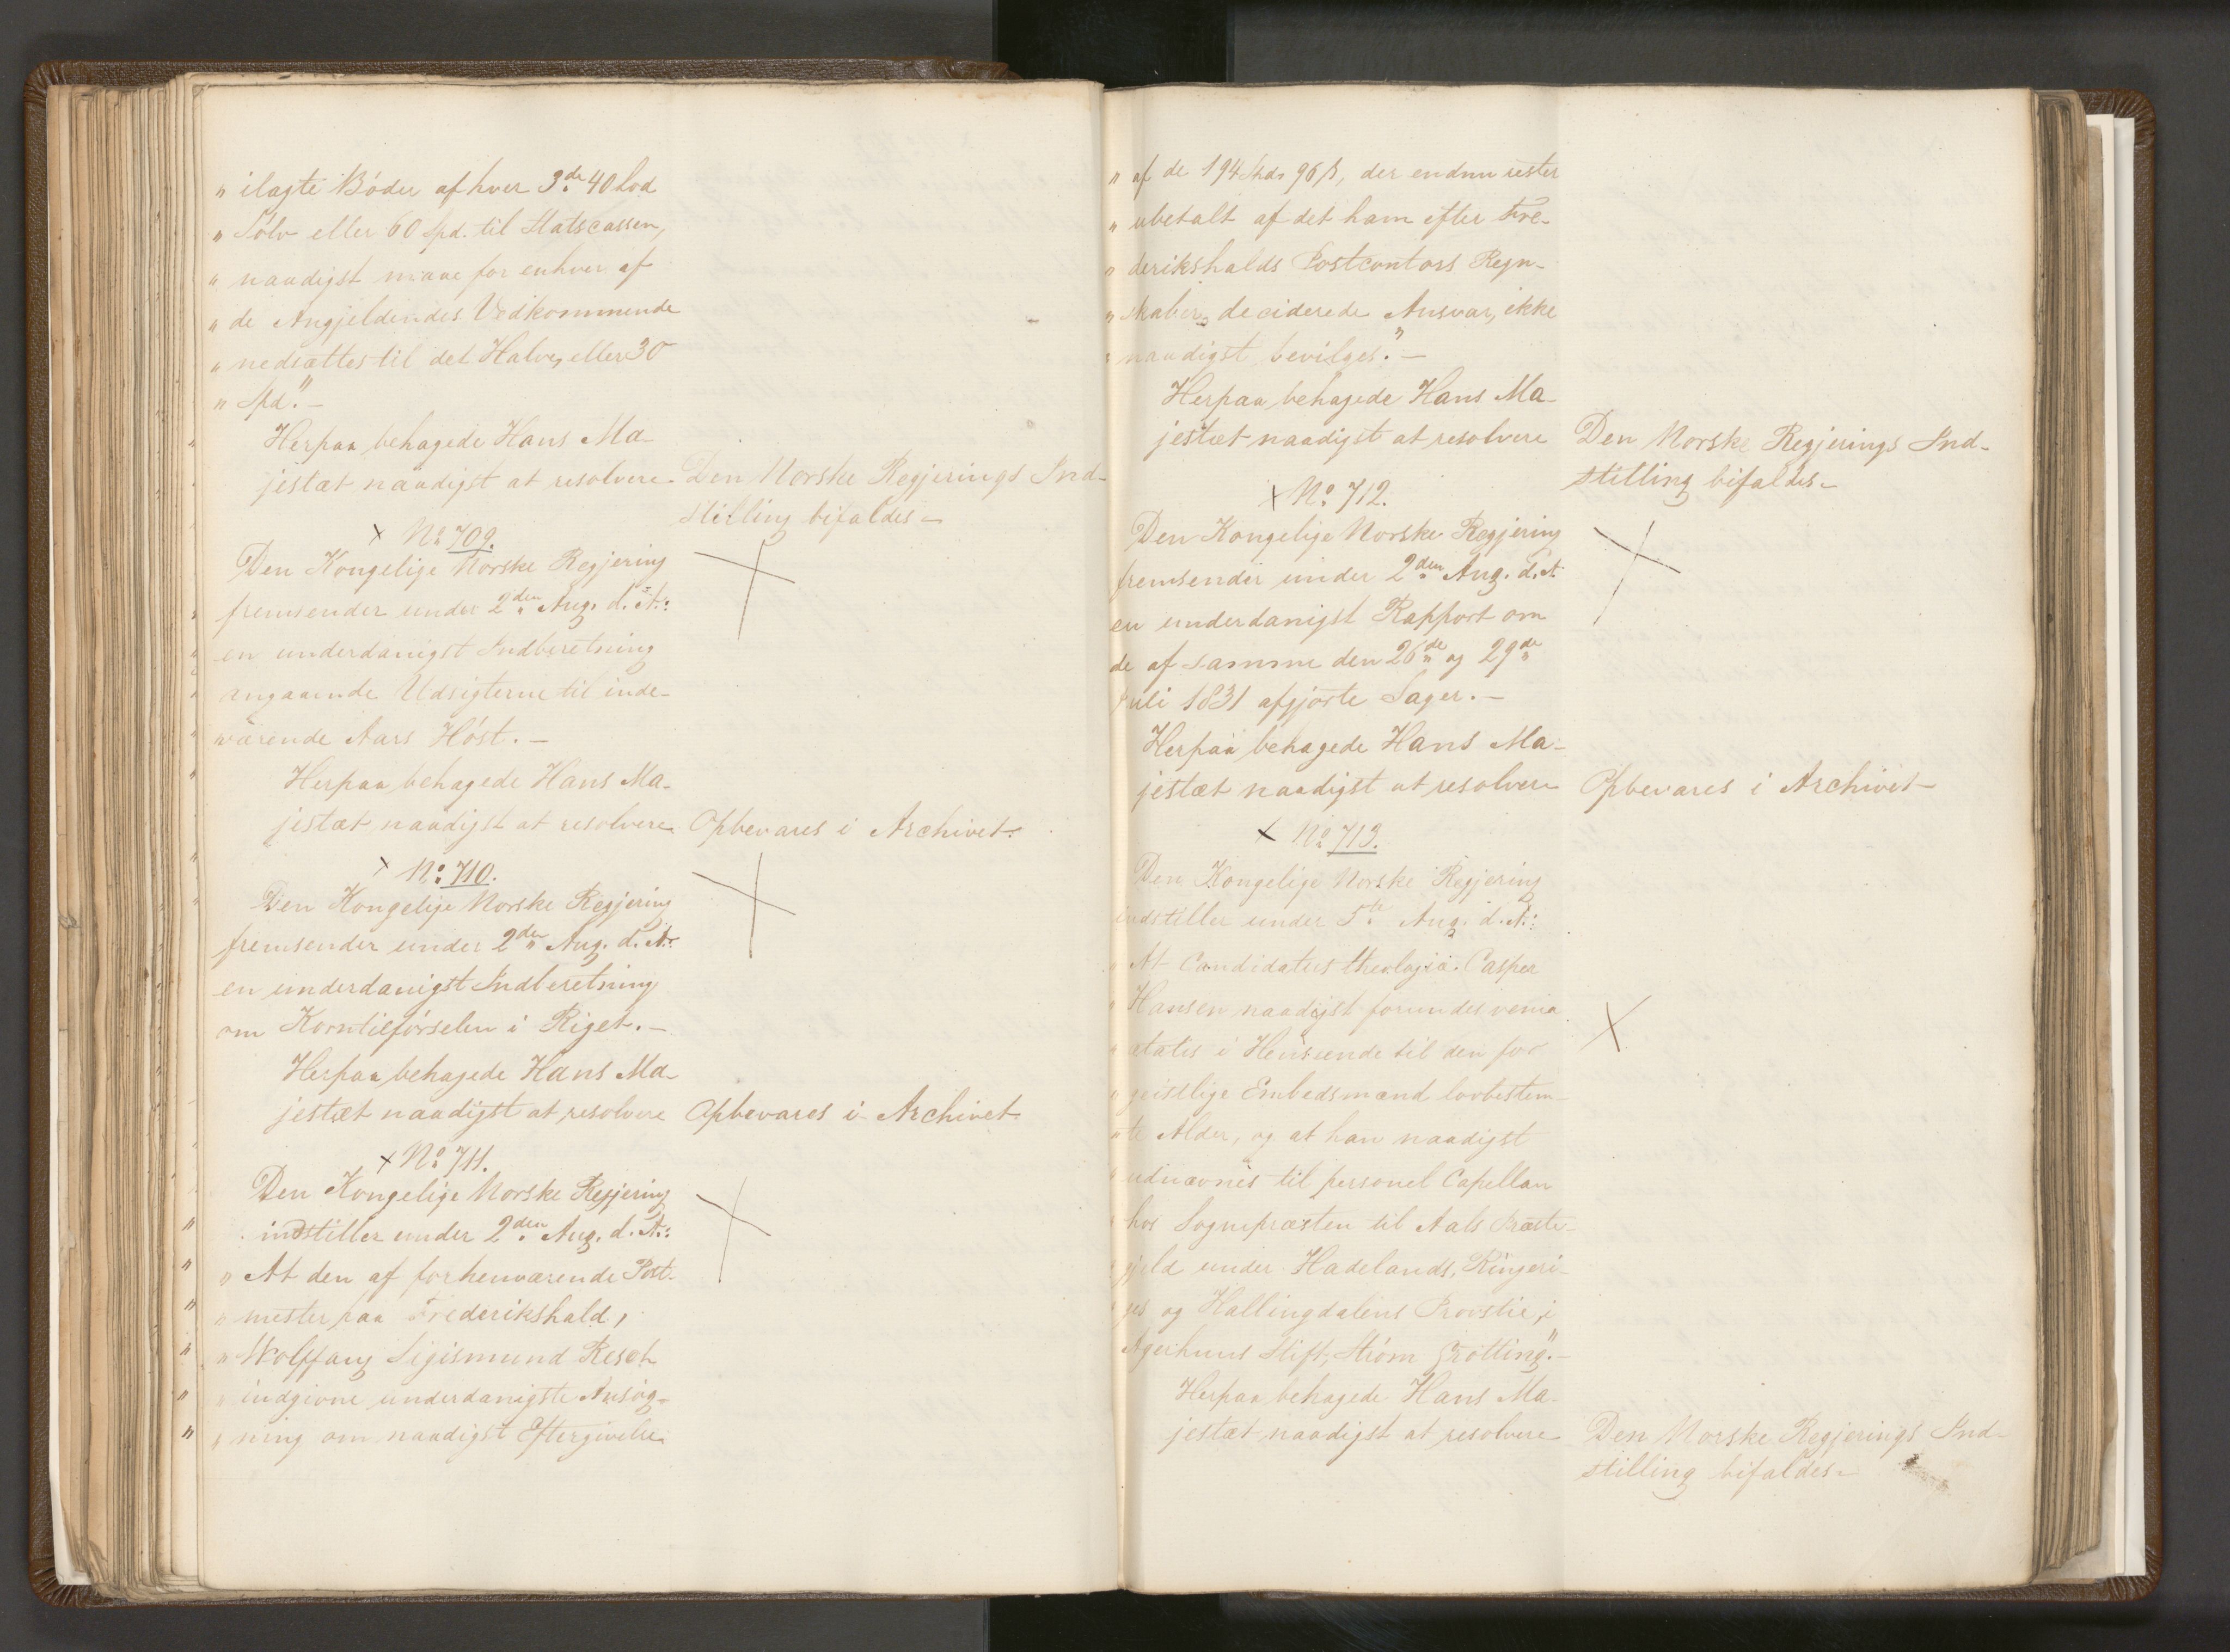 " ilagte Bøder af hver 3de 40 Lod
" Sølv eller 60 Spd. til Statscassen,
" naadigst maae for enhver af
" de Angjeldendes Vedkommende
" nedsættes til det Halve, eller 30
" Spd". –
Herpaa behagede Hans Ma-
jestæt naadigst at resolvere. Den Norske Regjerings Ind-
stilling bifaldes –
x No 709.
Den Kongelige Norske Regjering
fremsender under 2den Aug. d. A.:
en underdanigst Indberetning
angaaende Udsigterne til inde-
værende Aars Høst. –
Herpaa behagede Hans Ma-
jestæt naadigst at resolvere Opbevares i Archivet.
x No 710.
Den Kongelige Norske Regjering
fremsender under 2den Aug. d. A.:
en underdanigst Indberetning
om Korntilførselen i Riget. –
Herpaa behagede Hans Ma-
jestæt naadigst at resolvere Opbevares i Archivet
x No 711.
Den Kongelige Norske Regjering
indstiller under 2den Aug. d. A.:
" At den af forhenværende Post-
" mester paa Frederikshald,
" Wolffang Sigismund Resch
" indgivne underdanigste Ansøg-
" ning om naadigst Eftergivelse
" af de 194 Spd. 96 ß, der endnu rester
" ubetalt af det ham efter Fre-
" derikshalds Postcontors Regn-
" skaber, deciderede Ansvar, ikke
" naadigst bevilges." –
Herpaa behagede Hans Ma-
jestæt naadigst at resolvere Den Norske Regjerings Ind-
stilling bifaldes –
x No 712.
Den Kongelige Norske Regjering
fremsender under 2den Aug. d. A.
en underdanigst Rapport om
de af samme den 26de og 29de
Juli 1831 afgjorte Sager. –
Herpaa behagede Hans Ma-
jestæt naadigst at resolvere Opbevares i Archivet –
x No 713.
Den Kongelige Norske Regjering
indstiller under 5te Aug. d. A.:
" At Candidatus theologiæ Casper
" Hansen naadigst forundes venia
" ætatis i Henseende til den for
" geistlige Embedsmænd lovbestem-
" te Alder, og at han naadigst
" udnævnes til personel Capellan
" hos Sognepræsten til Aals Præste-
" gjeld under Hadelands, Ringeri-
" ges og Hallingdalens Provstie, i
Agerhuus Stift, Strøm Trøtting". –
Herpaa behagede Hans Ma-
jestæt naadigst at resolvere Den Norske Regjerings Ind-
stilling bifaldes –